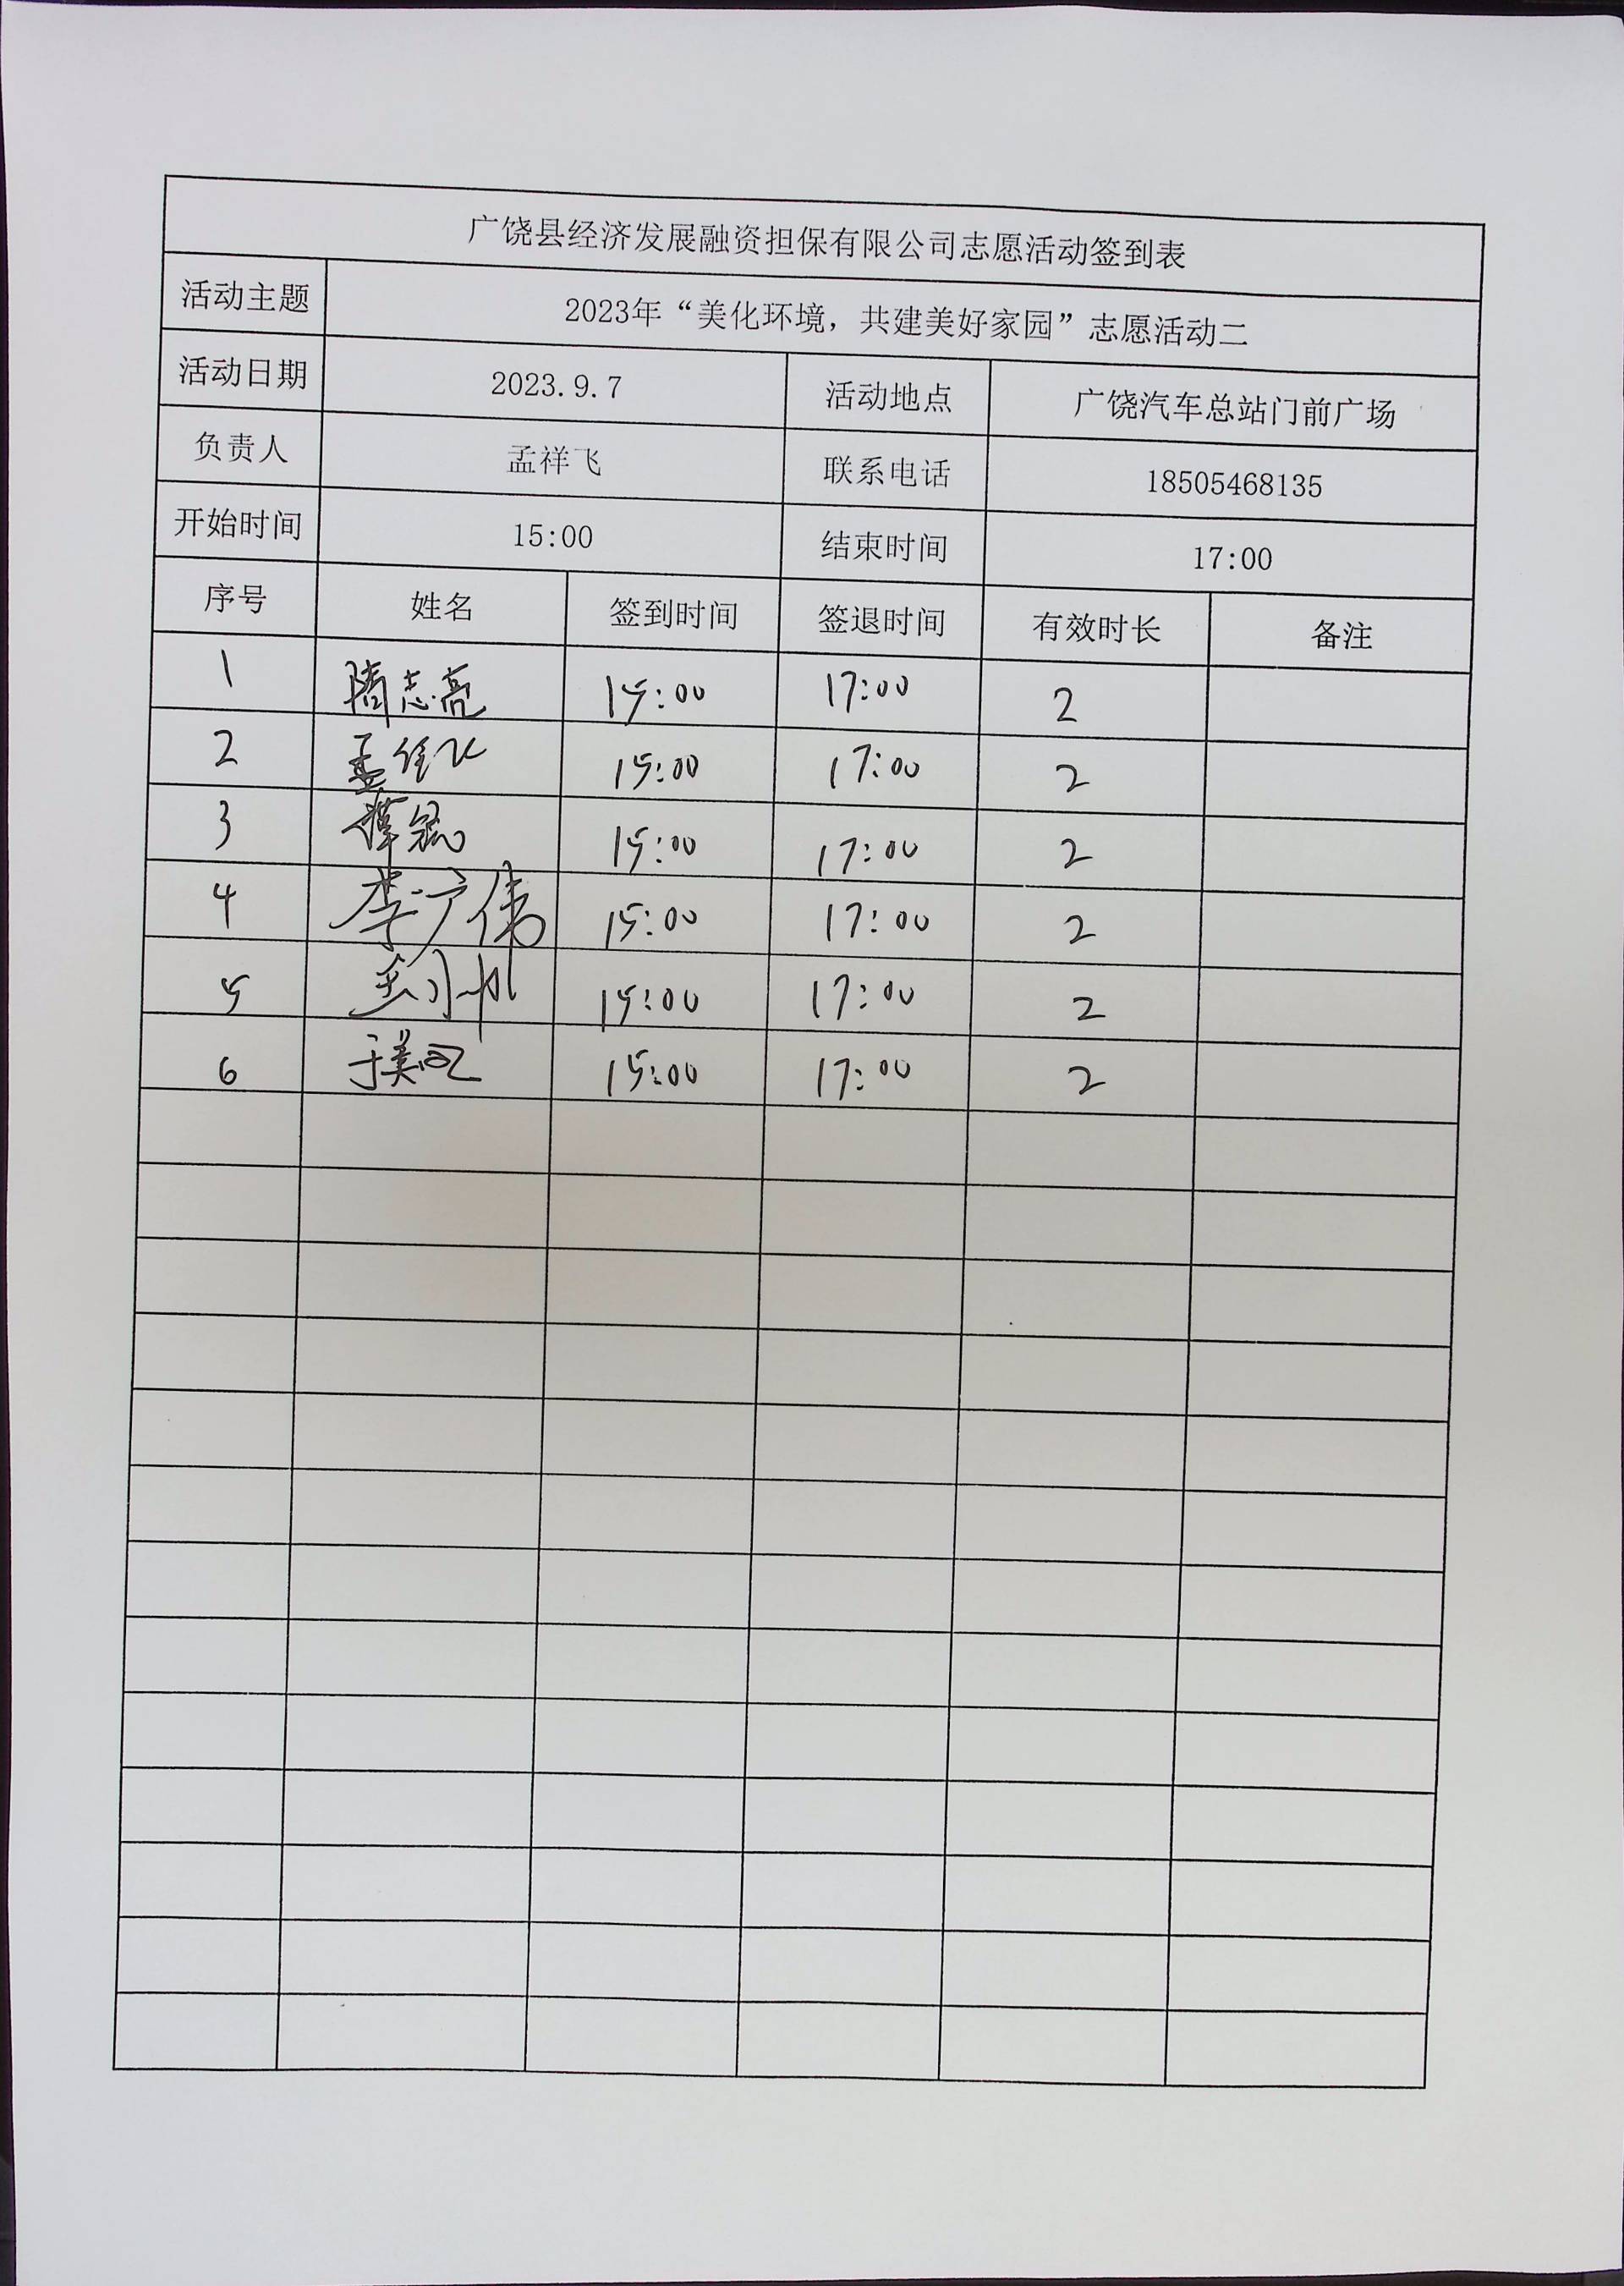 广饶县经济发展融资担保有限公司志愿活动签到表
活动主题 2023年“美化环境，共建美好家园”志愿活动二
活动日期 2023.9.7 活动地点 广饶汽车总站门前广场
负责人 孟祥飞 联系电话 18505468135
开始时间 15:00 结束时间 17:00
序号 姓名 签到时间 签退时间 有效时长 备注
1 隋志亮 15:00 17:00 2
2 15:00 17:00 2
3 15:00 17:00 2
4 李广伟 15:00 17:00 2
5 15:00 17:00 2
6 15:00 17:00 2